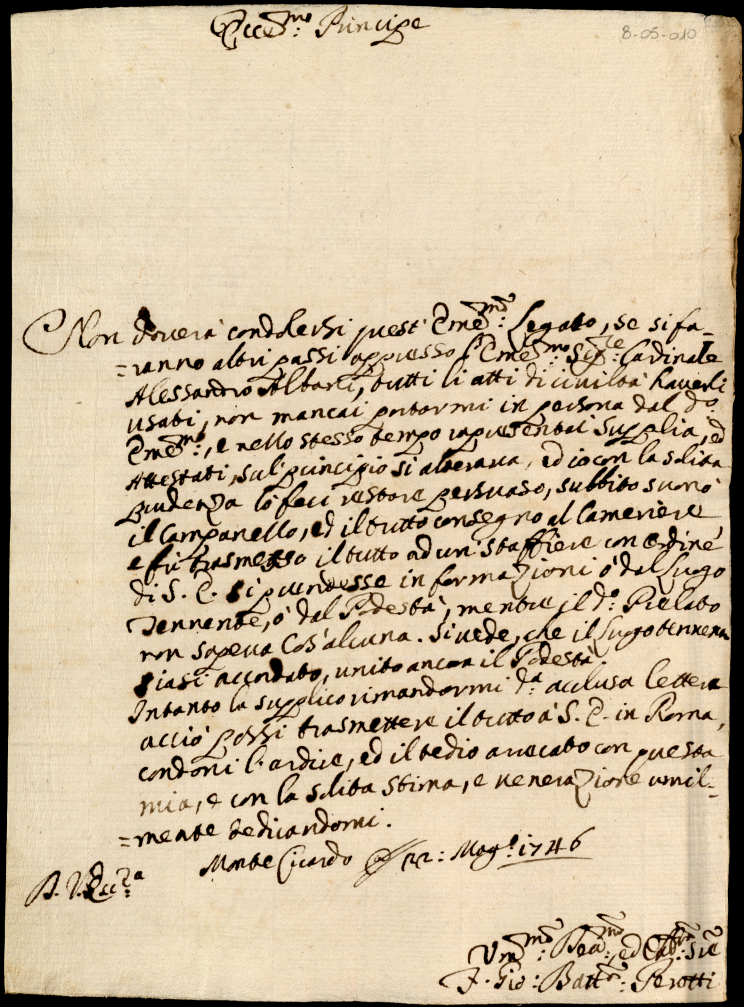 Ecc.mo Principe
8-05-010
Non dovera' condolersi quest' Eme.mo: Legato, se si fa-
=ranno altri passi appresso l'Eme.mo Sig.re Cardinale
Alessandro Albani, tutti li atti di civiltà haverli
usati, non mancai portarmi in persona dal do:
Eme.mo, e nello stesso tempo rapresentai supplia, ed
Attestati, sul principio si alterava, ed io con la solita
prudenza lo' feci restare persuaso, subbito suonò
il Campanello, ed il tutto consegnò al Cameriere
e fù trasmesso il tutto ad un' staffiere con ordine
di S. E. si prendesse informazioni ò dal Luogo
Tennente, ò dal Podestà, mentre il d.o Prelato
non sapeva Cos' alcuna. Si vede, che il Luogotennente
siasi accordato, unito ancora il Podestà.
Intanto la supplico rimandarmi d.a acclusa lettera
acciò possi trasmettere il tutto à S. E. in Roma,
condoni l'ardire, ed il tedio arrecato con questa
mia, e con la solita stima, e venerazione umil-
=mente dedicandomi.
Monte Cicardo 22: Mag.o 1746
D. V. Ecc.za
Um.mo: Dev.mo:, ed Obb.mo: Sre
F. Gio: Batt.a: Perotti